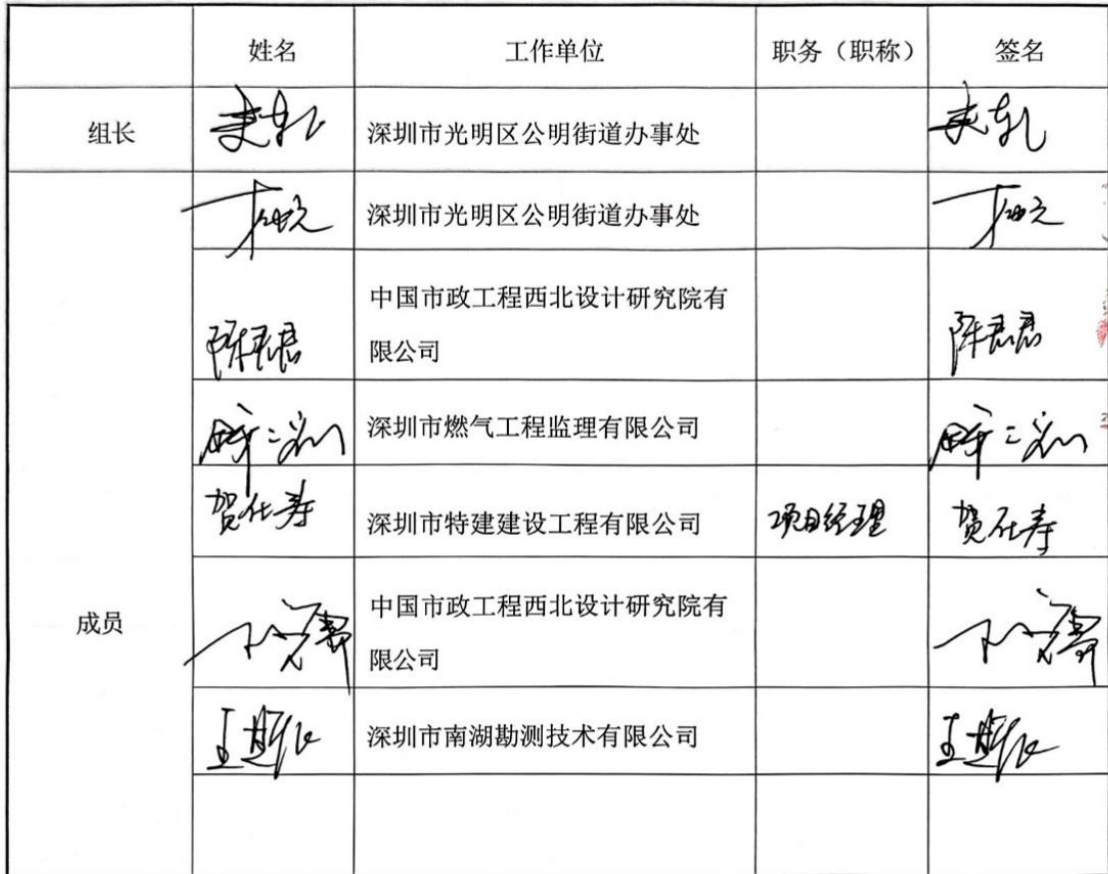 姓名 工作单位 职务（职称） 签名
组长 深圳市光明区公明街道办事处
深圳市光明区公明街道办事处
中国市政工程西北设计研究院有
限公司
陈君君 陈君君
深圳市燃气工程监理有限公司
贺仕寿 深圳市特建建设工程有限公司 项目经理 贺仕寿
成员
中国市政工程西北设计研究院有
限公司
深圳市南湖勘测技术有限公司